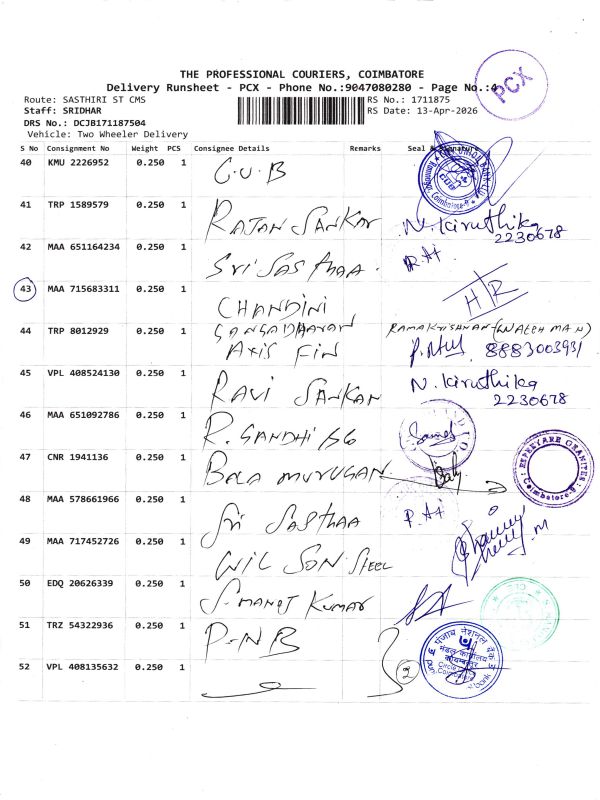 PCX
THE PROFESSIONAL COURIERS, COIMBATORE
Delivery Runsheet - PCX - Phone No.:9047080280 - Page No.:4
Route: SASTHIRI ST CMS
RS No.: 1711875
Staff: SRIDHAR
RS Date: 13-Apr-2026
DRS No.: DCJB171187504
Vehicle: Two Wheeler Delivery
S No Consignment No Weight PCS Consignee Details Remarks Seal & Signature
40 KMU 2226952 0.250 1 C.U.B
41 TRP 1589579 0.250 1 RAJAN SANKAR N. Kiruthika
2230678
42 MAA 651164234 0.250 1 Sri Sasthaa. R.At
43 MAA 715683311 0.250 1 CHANDINI H/R
44 TRP 8012929 0.250 1 GANGADHARAN RAMAKRISHNAN (WATCH MAN)
AXIS FIN 8883003931
45 VPL 408524130 0.250 1 RAVI SANKAR N. Kiruthika
2230678
46 MAA 651092786 0.250 1 R. GANDHI
47 CNR 1941136 0.250 1 BALA MURUGAN
ESPEYARE GRANITES
Coimbatore-9
48 MAA 578661966 0.250 1 Sri Sasthaa R.At
49 MAA 717452726 0.250 1 WILSON STEEL
50 EDQ 20626339 0.250 1 S. MANOJ KUMAR
51 TRZ 54322936 0.250 1 P-NB
पंजाब नेशनल बैंक
मंडल कार्यालय
कोयम्बटूर
52 VPL 408135632 0.250 1 2